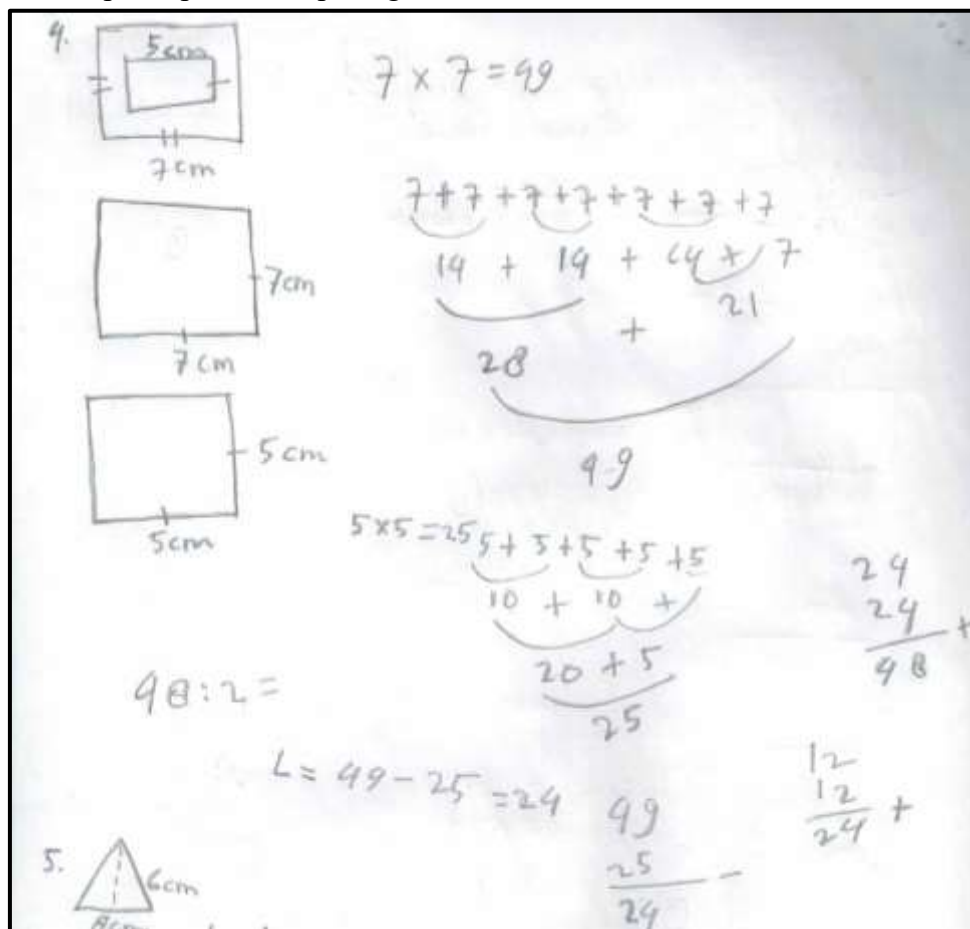 4.
5cm
7 x 7 = 49
7cm
7 + 7 + 7 + 7 + 7 + 7 + 7
14 + 14 + 14 + 7
21
7cm
+
28
7 cm
49
5 cm
5cm
5 x 5 = 25
5 + 5 + 5 + 5 + 5
10 + 10 +
20 + 5
25
24
24 +
48
48 : 2 =
L = 49 - 25 = 24
49
25 -
24
12
12 +
24
5.
6cm
8cm